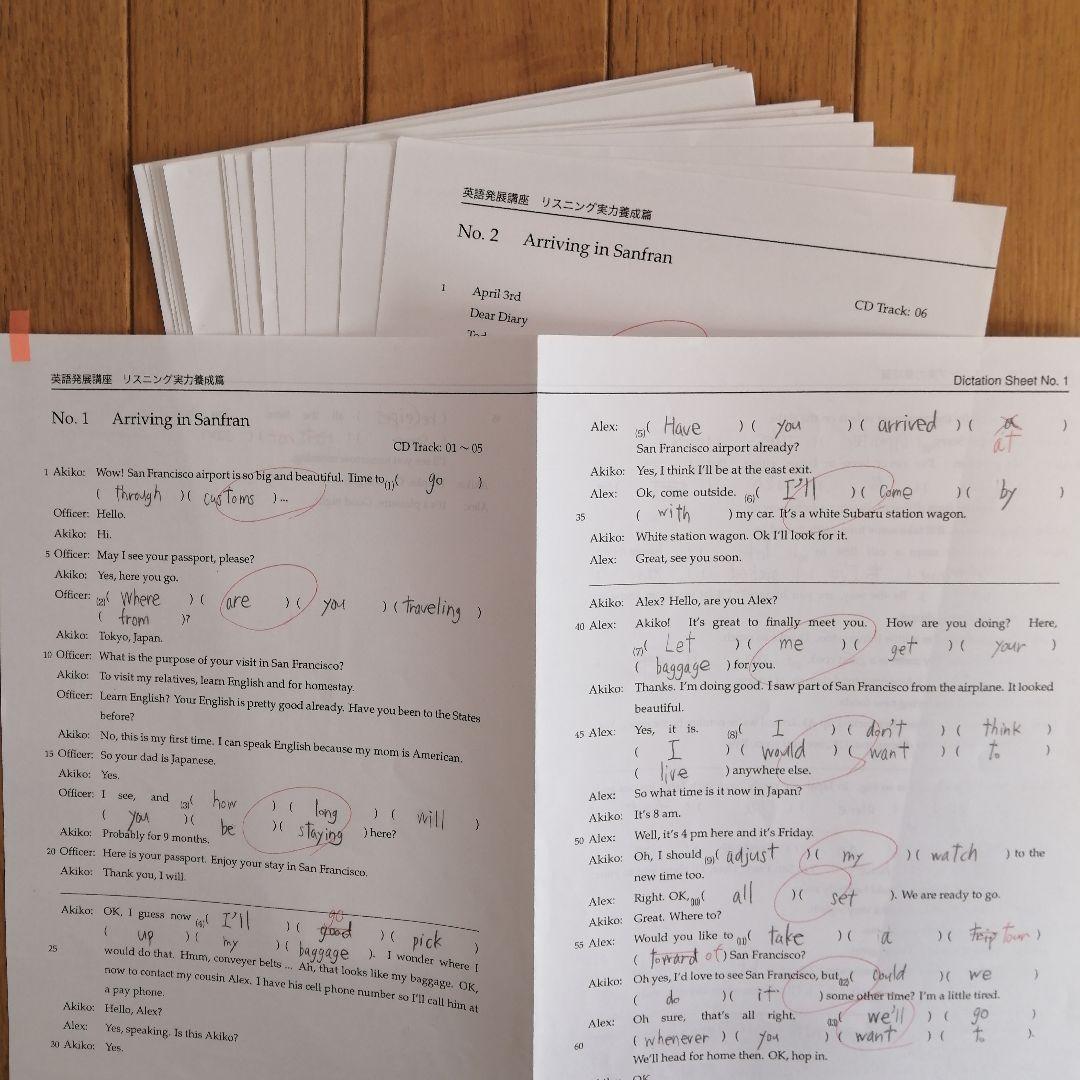 英語発展講座 リスニング実力養成篇
No. 2 Arriving in Sanfran
CD Track: 06
1 April 3rd
Dear Diary
英語発展講座 リスニング実力養成篇
No. 1 Arriving in Sanfran
CD Track: 01～05
1 Akiko: Wow! San Francisco airport is so big and beautiful. Time to (1)( go )
( through )( customs )...
Officer: Hello.
Akiko: Hi.
5 Officer: May I see your passport, please?
Akiko: Yes, here you go.
Officer: (2)( Where )( are )( you )( traveling )
( from )?
Akiko: Tokyo, Japan.
10 Officer: What is the purpose of your visit in San Francisco?
Akiko: To visit my relatives, learn English and for homestay.
Officer: Learn English? Your English is pretty good already. Have you been to the States
before?
Akiko: No, this is my first time. I can speak English because my mom is American.
15 Officer: So your dad is Japanese.
Akiko: Yes.
Officer: I see, and (3)( how )( long )( will )
( you )( be )( staying ) here?
Akiko: Probably for 9 months.
20 Officer: Here is your passport. Enjoy your stay in San Francisco.
Akiko: Thank you, I will.
Akiko: OK, I guess now (4)( I'll )( good go )( pick )
( up )( my )( baggage ). I wonder where I
25 would do that. Hmm, conveyer belts ... Ah, that looks like my baggage. OK,
now to contact my cousin Alex. I have his cell phone number so I'll call him at
a pay phone.
Akiko: Hello, Alex?
Alex: Yes, speaking. Is this Akiko?
30 Akiko: Yes.
Dictation Sheet No. 1
Alex: (5)( Have )( you )( arrived )( a at )
San Francisco airport already?
Akiko: Yes, I think I'll be at the east exit.
Alex: Ok, come outside. (6)( I'll )( come )( by )
35 ( with ) my car. It's a white Subaru station wagon.
Akiko: White station wagon. Ok I'll look for it.
Alex: Great, see you soon.
Akiko: Alex? Hello, are you Alex?
40 Alex: Akiko! It's great to finally meet you. How are you doing? Here,
(7)( Let )( me )( get )( your )
( baggage ) for you.
Akiko: Thanks. I'm doing good. I saw part of San Francisco from the airplane. It looked
beautiful.
45 Alex: Yes, it is. (8)( I )( don't )( think )
( I )( would )( want )( to )
( live ) anywhere else.
Alex: So what time is it now in Japan?
Akiko: It's 8 am.
50 Alex: Well, it's 4 pm here and it's Friday.
Akiko: Oh, I should (9)( adjust )( my )( watch ) to the
new time too.
Alex: Right. OK, (10)( all )( set ). We are ready to go.
Akiko: Great. Where to?
55 Alex: Would you like to (11)( take )( a )( trip tour )
( toward of ) San Francisco?
Akiko: Oh yes, I'd love to see San Francisco, but (12)( could )( we )
( do )( it ) some other time? I'm a little tired.
Alex: Oh sure, that's all right. (13)( we'll )( go )
60 ( whenever )( you )( want )( to ).
We'll head for home then. OK, hop in.